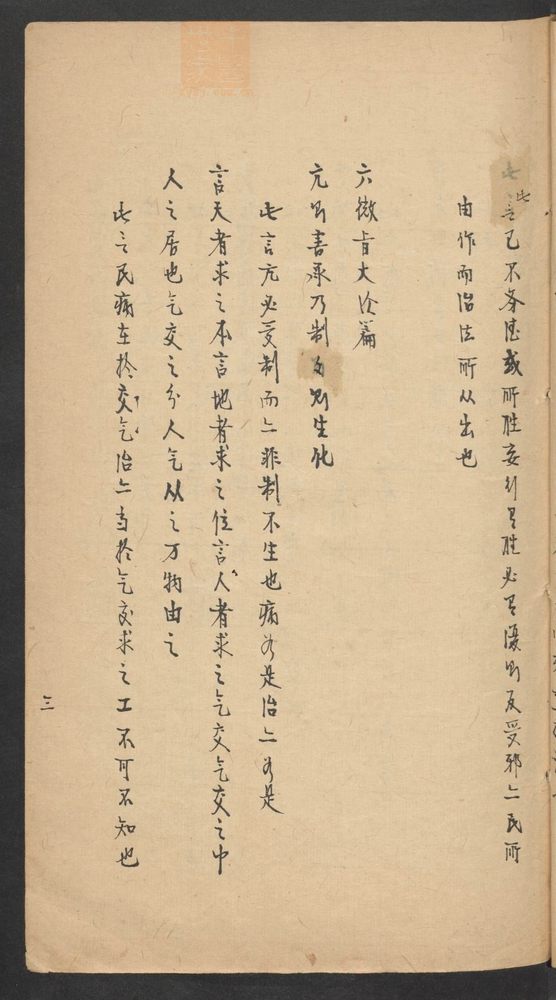 此言己不务德或所胜妄行有胜必有复则反受邪亦民所
由作而治法所从出也
六微旨大论篇
亢则害承乃制制则生化
此言亢必受制而亦非制不生也病如是治亦如是
言天者求之本言地者求之位言人者求之气交气交之中
人之居也气交之分人气从之万物由之
此言民病在於交气治亦当於气交求之工不可不知也
三